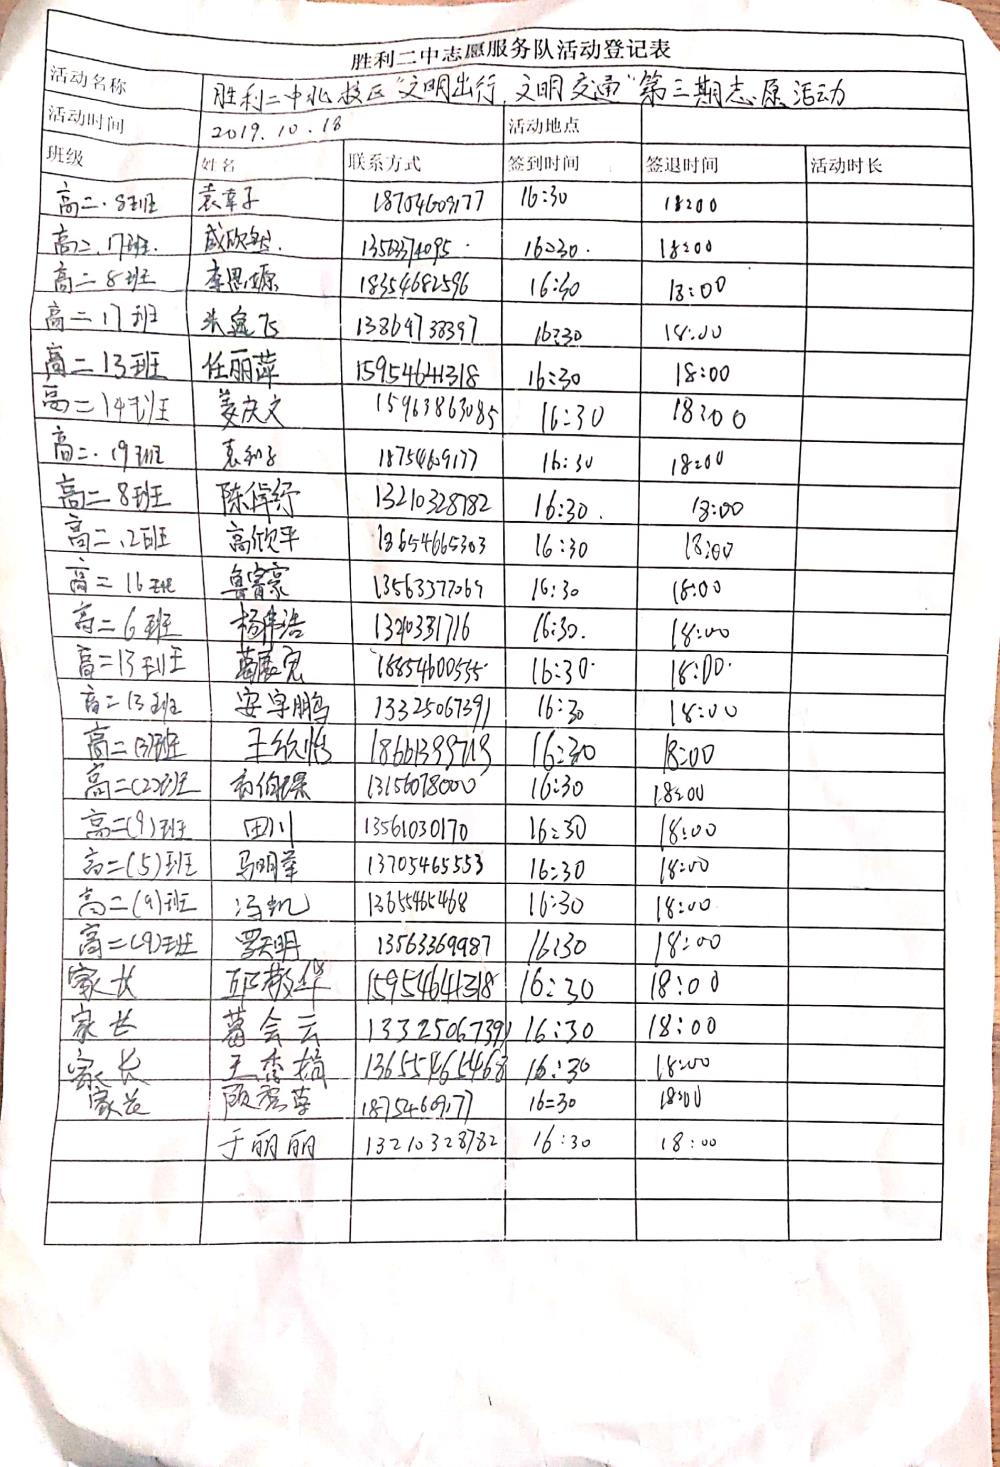 胜利二中志愿服务队活动登记表
活动名称 胜利二中北校区“文明出行 文明交通”第三期志愿活动
活动时间 2019.10.18 活动地点
班级 姓名 联系方式 签到时间 签退时间 活动时长
高二.8班 袁章子 18704609177 16:30 18:00
高二.17班. 1356374095 16:30. 18:00
高二8班 李思源 18354682596 16:30 18:00
高二17班 13864738397 16:30 18:00
高二13班 任丽萍 15954641318 16:30 18:00
高二14班 姜庆文 15963863085 16:30 18:00
高二.19班 袁和子 18754609177 16:30 18:00
高二8班 陈 13210328782 16:30. 18:00
高二.12班 高欣平 18654665303 16:30 18:00
高二16班 鲁 13563377067 16:30 18:00
高二6班 杨伟浩 1320331716 16:30. 18:00
高二13班 葛展宽 18854600555 16:30 18:00
高二13班 安宇鹏 13325067391 16:30 18:00
高二13班 王欣怡 18661399719 16:30 18:00
高二(2)班 13156078000 16:30 18:00
高二(9)班 田川 13561030170 16:30 18:00
高二(5)班 马明苹 13705465553 16:30 18:00
高二(9)班 冯凯 13655465468 16:30 18:00
高二(9)班 罗天明 13563369987 16:30 18:00
家长 邱敬华 15954641318 16:30 18:00
家长 葛会云 13325067391 16:30 18:00
家长 王秀娟 13655465468 16:30 18:00
家长 顾秀草 18754609177 16:30 18:00
于丽丽 13210328782 16:30 18:00